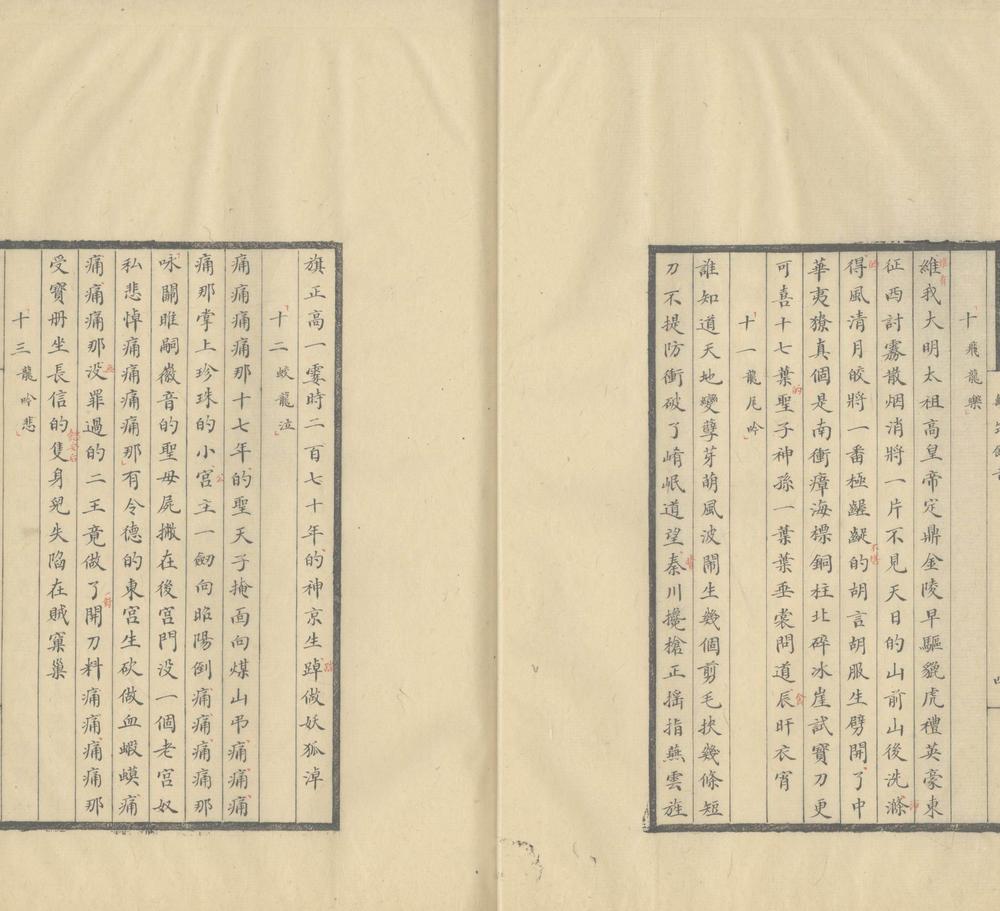 十 飛龍樂
維我大明太祖高皇帝定鼎金陵早驅貔虎禮英豪東
征西討霧散烟消將一片不見天日的山前山後洗滌
得風清月皎將一番極齷齪的胡言胡服生劈開了中
華夷獠真個是南衝瘴海標銅柱北碎冰崖試寶刀更
可喜十七葉聖子神孫一葉葉垂裳問道辰旰衣宵
十一 龍尾吟
誰知道天地變孽芽萌風波鬧生幾個剪毛抰幾條短
刀不提防衝破了崤岷道望秦川攙槍正搖指燕雲旌
旗正高一霎時二百七十年的神京生踔做妖狐淖
十二 蛟龍泣
痛痛痛痛那十七年的聖天子掩面向煤山弔痛痛痛
痛那掌上珍珠的小宮主一劒向昭陽倒痛痛痛痛那
咏關雎嗣徽音的聖母屍撇在後宮門没一個老宮奴
私悲悼痛痛痛痛那有令德的東宮生砍做血蝦蟆痛
痛痛痛那没罪過的二王竟做了開刀料痛痛痛痛那
受寶冊坐長信的隻身兒失陷在賊窠巢
十三 龍吟悲